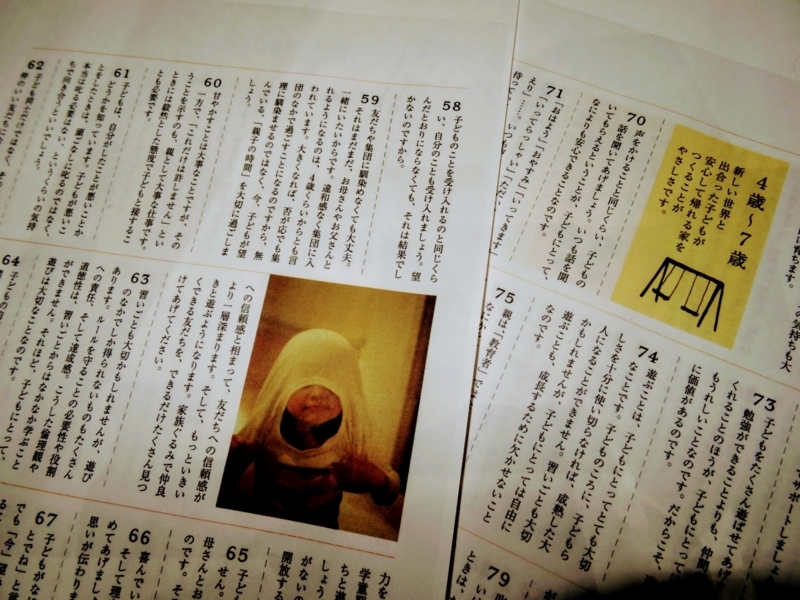 58 子どものことを受け入れるのと同じくら
い、自分のことも受け入れましょう。望
んだとおりにならなくても、それは結果でし
かないのですから。
59 友だちや集団に馴染めなくても大丈夫。
それはまだまだ、お母さんやお父さんと
一緒にいたいからです。違和感なく集団に入
れるようになるのは、4歳くらいからとも言
われています。大きくなれば、否が応でも集
団のなかで過ごすことになるのですから、無
理に馴染ませるのではなく、今、子どもが望
んでいる、「親子の時間」を大切に過ごしま
しょう。
60 甘やかすことは大事なことですが、その
一方で、「これだけは許しません」とい
うことを示すのも、親として大事な仕事です。
ときには毅然とした態度で子どもと接するこ
とも必要です。
61 子どもは、自分がしたことが悪いことか
どうかを知っています。子どもが悪いこ
とをしたときは、頭ごなしに叱るのではなく、
62 子ども
への信頼感と相まって、友だちへの信頼感が
より一層深まります。そして、もっといいき
きと遊ぶようになります。家族ぐるみで仲良
くできる友だちを、できるだけたくさん見つ
けてあげてください。
63 習いごとも大切かもしれませんが、遊び
のなかでしか得られないものもたくさん
あります。ルールを守ることの必要性や役割
への責任、そして達成感。こうした倫理観や
道徳性は、習いごとからはなかなか学ぶこと
ができません。それほど、子どもにとって、
遊びは大切なことなのです。
64 子どもの
力を
学童期
ちと遊
しょう
がないの
開放する
65 子ども
せん。
母さんとお
のです。そ
66 喜んでい
そして理
めてあげましょ
思いが伝わりま
67 子どもがな
とでね」と言
でも「今」望
4歳〜7歳
新しい世界と
出合った子どもが
安心して帰れる家を
つくることが
やさしさです。
70 声をかけることと同じくらい、子どもの
話を聞いてあげましょう。いつも話を聞
いてもらえるということが、子どもにとって、
なによりも安心できることなのです。
71 「おはよう」「おやすみ」「いってきます」
「いってらっしゃい」「ただいま」
73 子どもをたくさん遊ばせてあげ
勉強ができることよりも、仲間
くれることのほうが、子どもにとっては
もうれしいことなのです。だからこそ、
に価値があるのです。
74 遊ぶことは、子どもにとってとても大切
なことです。子どものころに、子どもら
しさを十分に使い切らなければ、成熟した大
人になることができません。習いごとも大切
かもしれませんが、子どもにとっては自由に
遊ぶことも、成長するために欠かせないこと
なのです。
75 親は「教育者」でな
79
ときは、